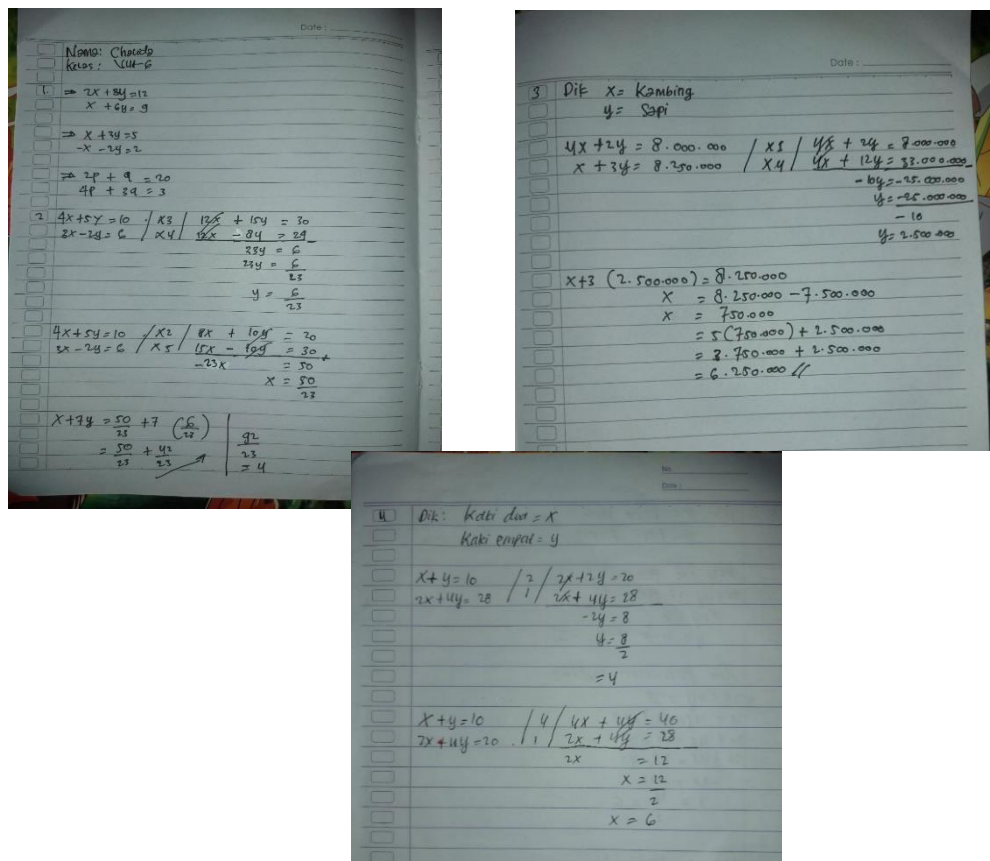 Date :
Nama: Chaceda
Kelas: VIII-6
1. ⇒ 2x + 8y = 12
x + 6y = 9
⇒ x + 3y = 5
-x - 2y = 2
⇒ 2p + q = 20
4p + 3q = 3
2 4x + 5y = 10 / x3 / 12x + 15y = 30
3x - 2y = 6 / x4 / 12x - 8y = 24
23y = 6
23y = 6/23
y = 6/23
4x + 5y = 10 / x2 / 8x + 10y = 20
3x - 2y = 6 / x5 / 15x - 10y = 30 +
-23x = 50
x = 50/23
x + 7y = 50/23 + 7 (6/23)
= 50/23 + 42/23
92/23
= 4
Date :
3 Dik x = Kambing
y = Sapi
4x + 2y = 8.000.000 / x3 / 4x + 2y = 8.000.000
x + 3y = 8.250.000 / x4 / 4x + 12y = 33.000.000
-10y = -25.000.000
y = -25.000.000
-10
y = 2.500.000
x + 3 (2.500.000) = 8.250.000
x = 8.250.000 - 7.500.000
x = 750.000
= 5 (750.000) + 2.500.000
= 3.750.000 + 2.500.000
= 6.250.000 //
No
Date :
4 Dik: Kaki dua = x
Kaki empat = y
x + y = 10 / 2 / 2x + 2y = 20
2x + 4y = 28 / 1 / 2x + 4y = 28
-2y = 8
y = 8/2
= 4
x + y = 10 / 4 / 4x + 4y = 40
2x + 4y = 20 / 1 / 2x + 4y = 28
2x = 12
x = 12/2
x = 6